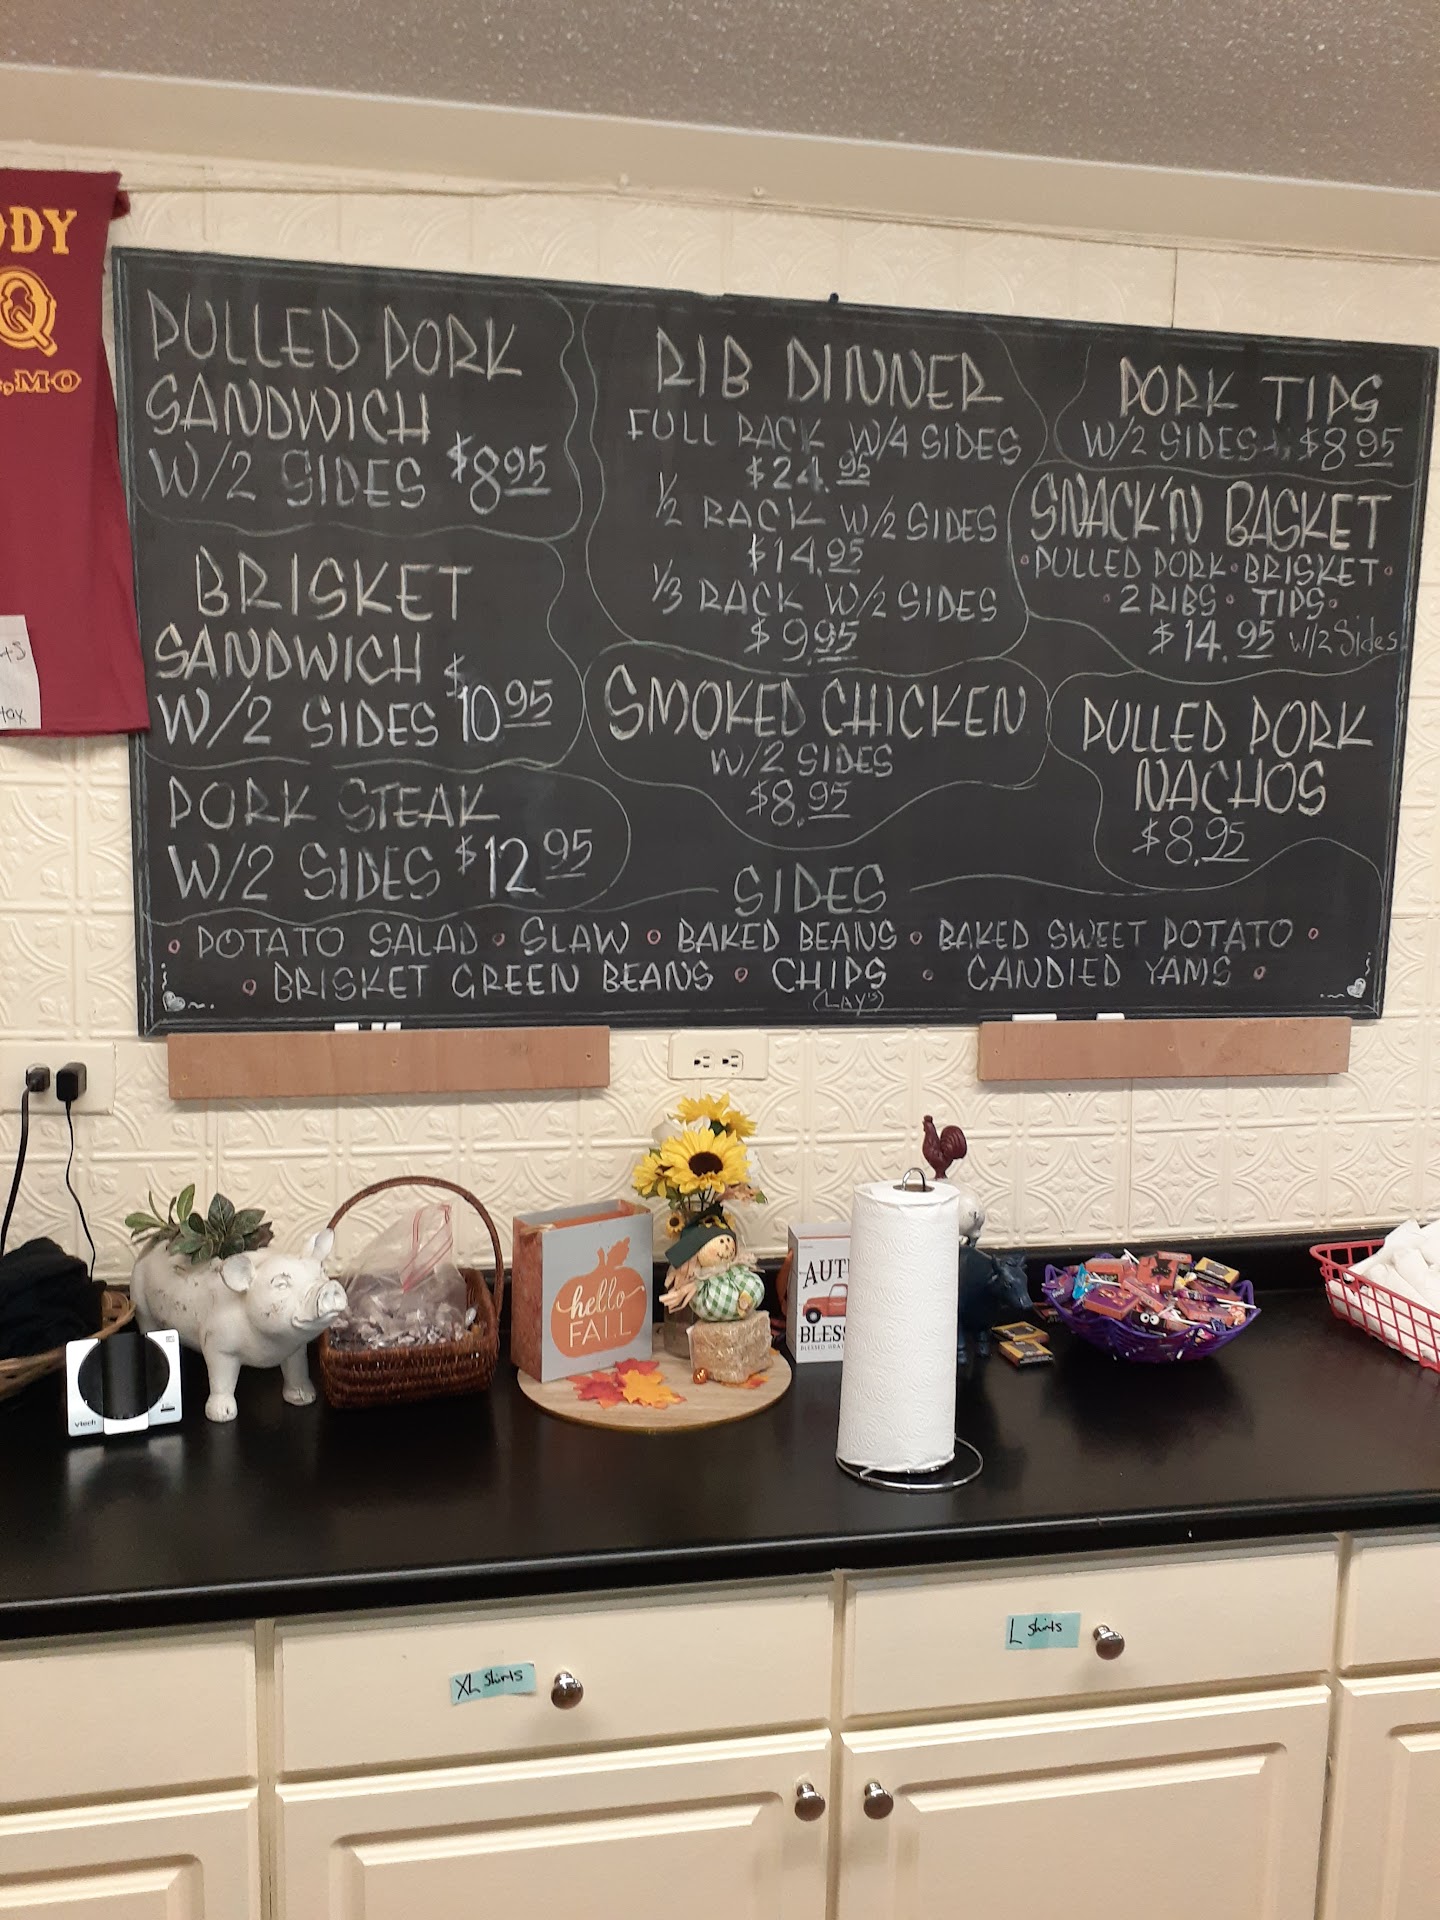 DDY
Q
,MO
PULLED PORK
SANDWICH
W/2 SIDES $8.95
BRISKET
SANDWICH
W/2 SIDES $10.95
PORK STEAK
W/2 SIDES $12.95
RIB DINNER
FULL RACK W/4 SIDES
$24.95
1/2 RACK W/2 SIDES
$14.95
1/3 RACK W/2 SIDES
$9.95
SMOKED CHICKEN
W/2 SIDES
$8.95
PORK TIPS
W/2 SIDES $8.95
SNACK'N BASKET
• PULLED PORK • BRISKET •
• 2 RIBS • TIPS •
$14.95 W/2 Sides
PULLED PORK
NACHOS
$8.95
SIDES
• POTATO SALAD • SLAW • BAKED BEANS • BAKED SWEET POTATO •
• BRISKET GREEN BEANS • CHIPS • CANDIED YAMS •
(LAY'S)
hello
FALL
AUT
BLESS
vtech
XL Shirts
L Shirts